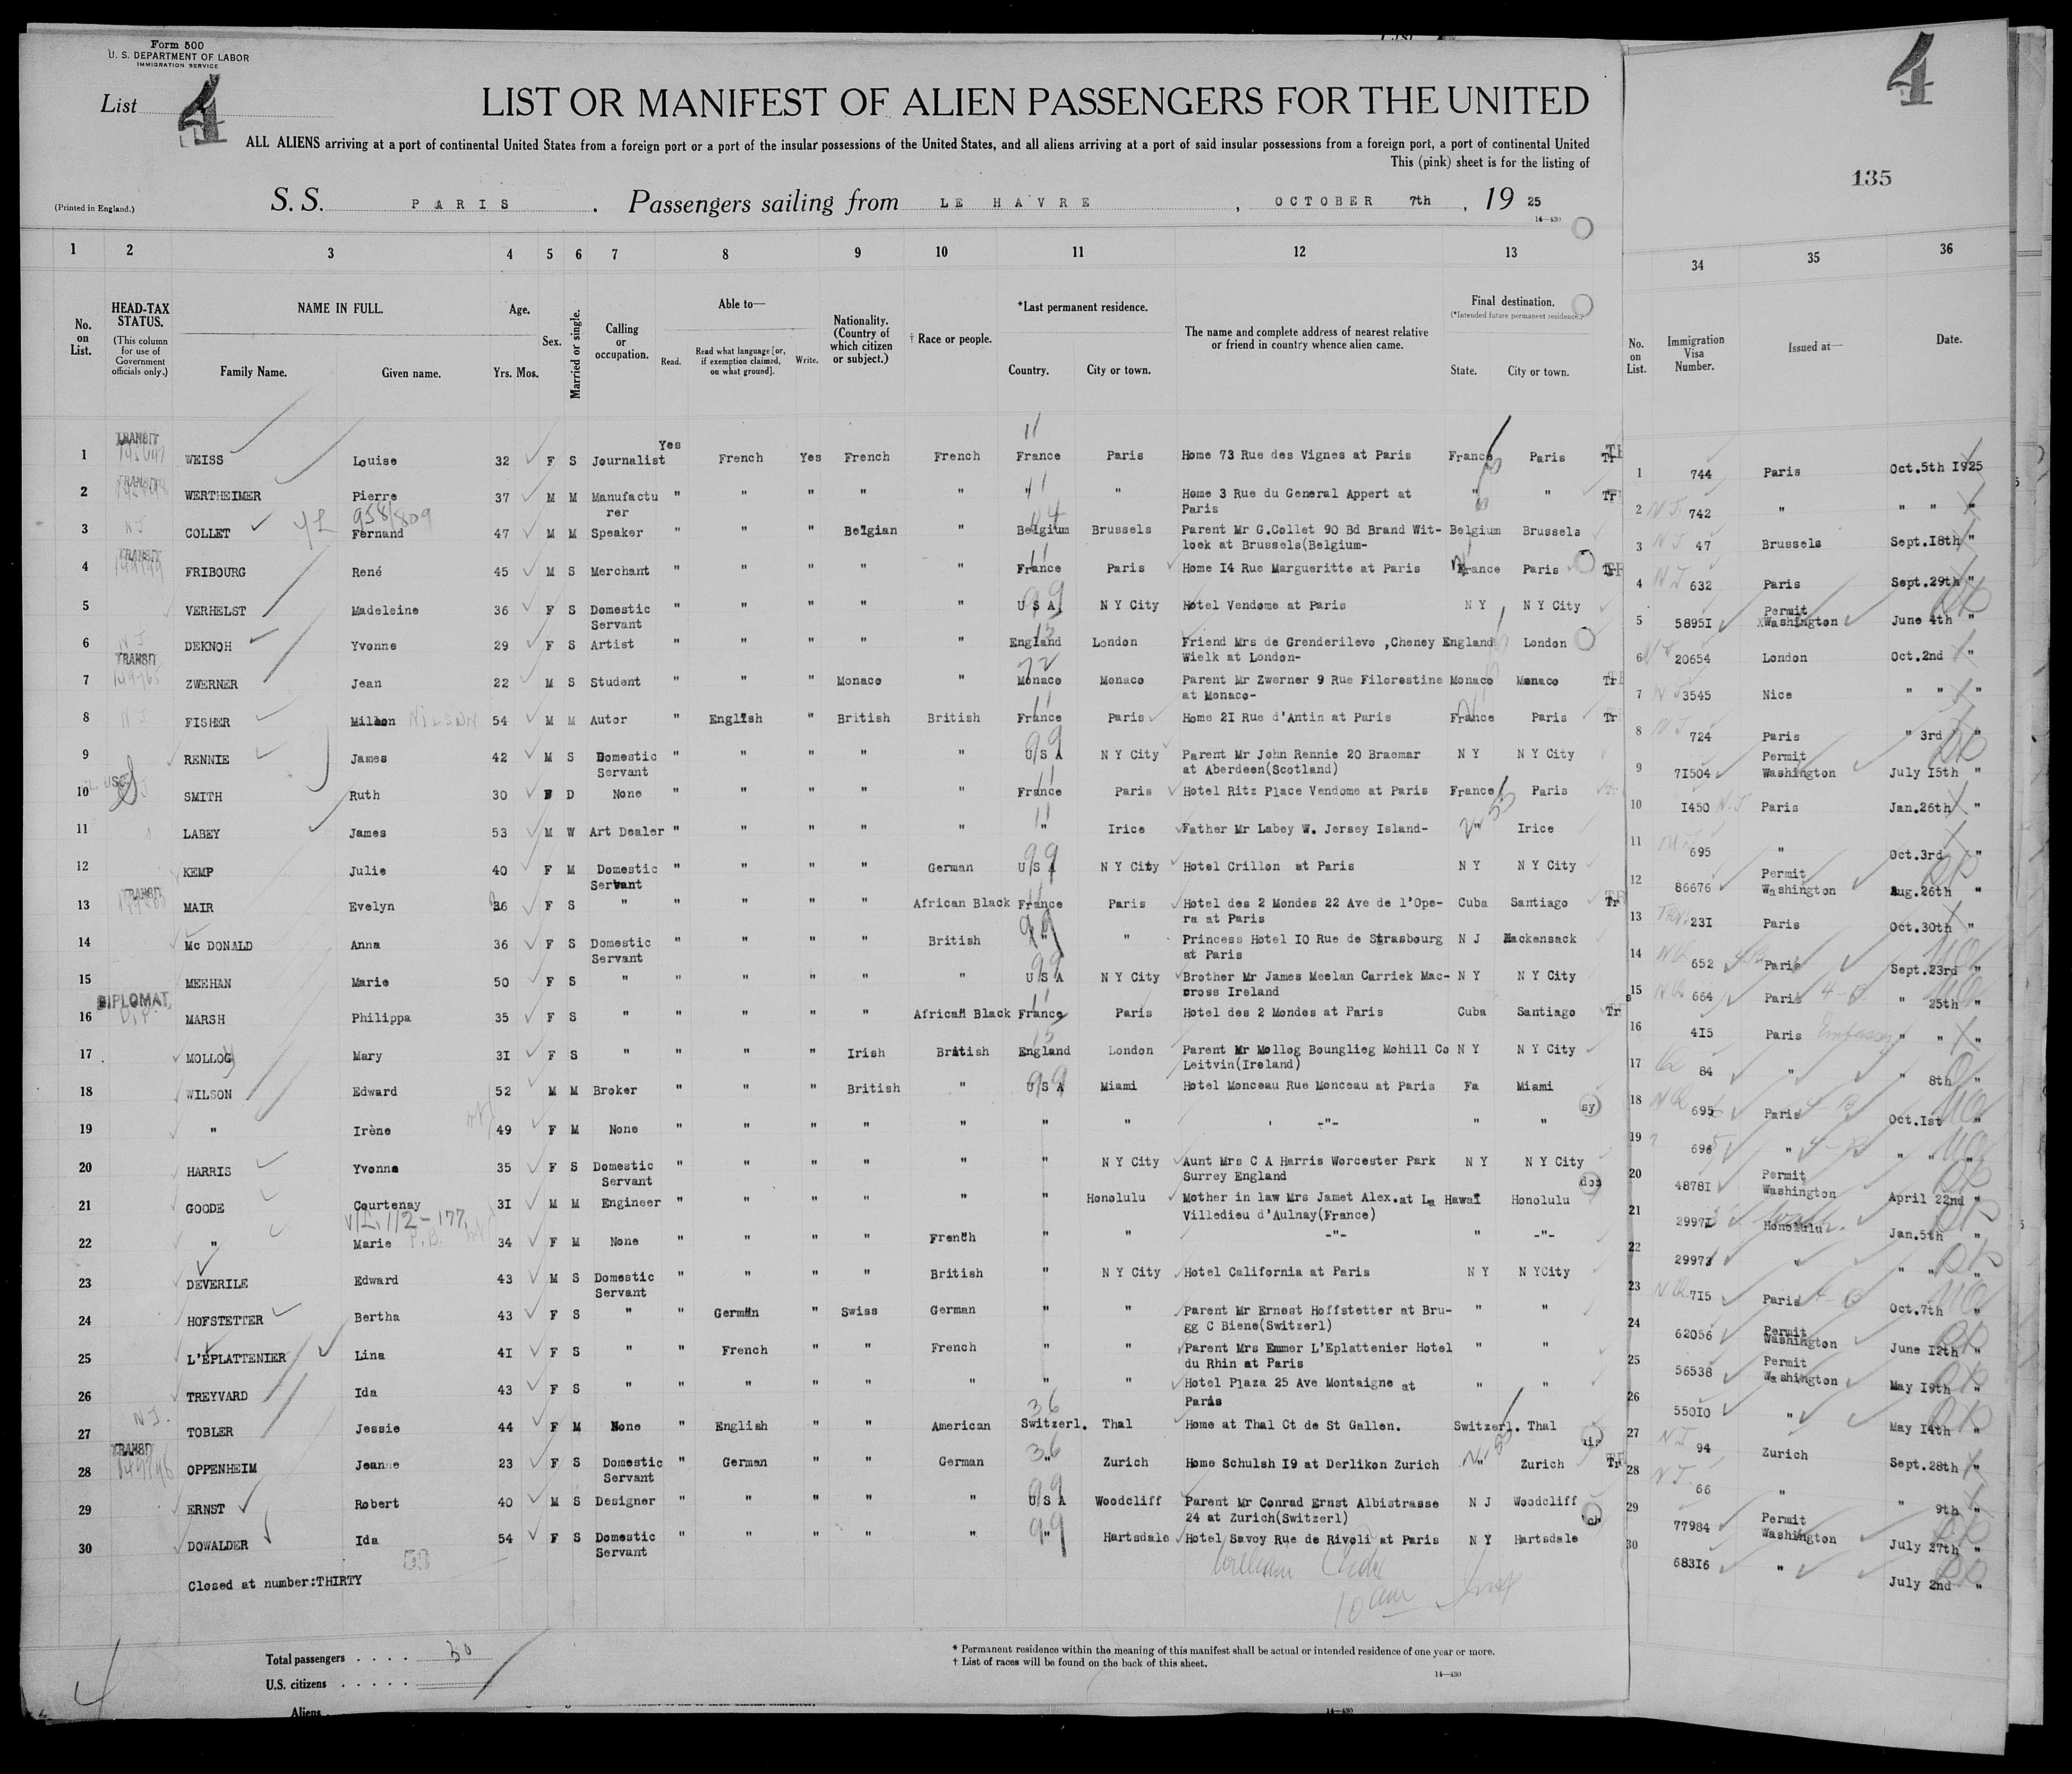 Form 500
U. S. DEPARTMENT OF LABOR
IMMIGRATION SERVICE
List 4
4
LIST OR MANIFEST OF ALIEN PASSENGERS FOR THE UNITED
ALL ALIENS arriving at a port of continental United States from a foreign port or a port of the insular possessions of the United States, and all aliens arriving at a port of said insular possessions from a foreign port, a port of continental United
This (pink) sheet is for the listing of
135
(Printed in England.)
S. S. PARIS. Passengers sailing from LE HAVRE, OCTOBER 7th, 19 25
14—430
1 2 3 4 5 6 7 8 9 10 11 12 13 34 35 36
No. on List.
HEAD-TAX STATUS.
(This column for use of Government officials only.)
NAME IN FULL.
Family Name. Given name.
Age.
Yrs. Mos.
Sex.
Married or single.
Calling or occupation.
Able to—
Read. Read what language [or, if exemption claimed, on what ground]. Write.
Nationality. (Country of which citizen or subject.)
† Race or people.
*Last permanent residence.
Country. City or town.
The name and complete address of nearest relative or friend in country whence alien came.
Final destination.
(*Intended future permanent residence.)
State. City or town.
No. on List. Immigration Visa Number. Issued at— Date.
1 TRANSIT WEISS Louise 32 F S Journalist Yes French Yes French French France Paris Home 73 Rue des Vignes at Paris France Paris Tr 1 744 Paris Oct.5th 1925
2 TRANSIT WERTHEIMER Pierre 37 M M Manufactu " " " " " " " Home 3 Rue du General Appert at " " Tr 2 742 " " " "
rer Paris
958/809
3 N J COLLET Fernand 47 M M Speaker " " " Belgian " Belgium Brussels Parent Mr G.Collet 90 Bd Brand Wit- Belgium Brussels 3 47 Brussels Sept.18th "
look at Brussels(Belgium-
4 TRANSIT FRIBOURG René 45 M S Merchant " " " " " France Paris Home 14 Rue Margueritte at Paris France Paris Tr 4 632 Paris Sept.29th "
5 VERHELST Madeleine 36 F S Domestic " " " " " U S A N Y City Hotel Vendome at Paris N Y N Y City 5 58951 Permit
Servant Washington June 4th "
6 N J DEKNOH Yvonne 29 F S Artist " " " " " England London Friend Mrs de Grenderilevo ,Cheney England London 6 20654 London Oct.2nd "
Wielk at London-
7 TRANSIT 149765 ZWERNER Jean 22 M S Student " " " Monaco " Monaco Monaco Parent Mr Zwerner 9 Rue Florestine Monaco Monaco Tr 7 3545 Nice " " "
at Monaco-
8 N J FISHER NILSON 54 M M Autor " English " British British France Paris Home 21 Rue d'Antin at Paris France Paris Tr 8 724 Paris " 3rd "
9 RENNIE James 42 M S Domestic " " " " " U S A N Y City Parent Mr John Rennie 20 Braemar N Y N Y City 9 71504 Permit
Servant at Aberdeen(Scotland) Washington July 15th "
10 SMITH Ruth 30 F D None " " " " " France Paris Hotel Ritz Place Vendome at Paris France Paris 10 1450 Paris Jan.26th "
11 LABEY James 53 M W Art Dealer " " " " " " Irice Father Mr Labey W. Jersey Island- " Irice 11 695 " Oct.3rd "
12 KEMP Julie 40 F M Domestic " " " " German U S A N Y City Hotel Crillon at Paris N Y N Y City 12 86676 Permit
Servant Washington Aug.26th "
13 TRANSIT MAIR Evelyn 36 F S " " " " " African Black France Paris Hotel des 2 Mondes 22 Ave de l'Ope- Cuba Santiago Tr 13 231 Paris Oct.30th "
ra at Paris
14 Mc DONALD Anna 36 F S Domestic " " " " British " " Princess Hotel 10 Rue de Strasbourg N J Hackensack 14 652 Paris Sept.23rd "
Servant at Paris
15 MEEHAN Marie 50 F S " " " " " " U S A N Y City Brother Mr James Meelan Carriek Mac- N Y N Y City 15 664 Paris " 25th "
cross Ireland
16 DIPLOMAT MARSH Philippa 35 F S " " " " " African Black France Paris Hotel des 2 Mondes at Paris Cuba Santiago Tr 16 415 Paris Embassy " " "
17 MOLLOG Mary 31 F S " " " " Irish British England London Parent Mr Mollog Bounglieg Mohill Co N Y N Y City 17 84 " " 8th "
Leitvin(Ireland)
18 WILSON Edward 52 M M Broker " " " British " U S A Miami Hotel Monceau Rue Monceau at Paris Fa Miami 18 695 Paris Oct.1st "
19 " Irène 49 F M None " " " " " " " -"- " " 19 696 " " " "
20 HARRIS Yvonne 35 F S Domestic " " " " " " N Y City Aunt Mrs C A Harris Worcester Park N Y N Y City 20 48781 Permit
Servant Surrey England Washington April 22nd "
21 GOODE Courtenay 31 M M Engineer " " " " " " Honolulu Mother in law Mrs Jamet Alex.at La Hawaï Honolulu 21 29971 Honolulu Jan.5th "
Villedieu d'Aulnay(France)
22 " Marie 34 F M None " " " " French " " -"- " -"- 22 29973 " " " "
23 DEVERILE Edward 43 M S Domestic " " " " British " N Y City Hotel California at Paris N Y N YCity 23 715 Paris Oct.7th "
Servant
24 HOFSTETTER Bertha 43 F S " " German " Swiss German " " Parent Mr Ernest Hoffstetter at Bru- " " 24 62056 Permit
gg C Biene(Switzerl) Washington June 12th "
25 L'EPLATTENIER Lina 41 F S " " French " " French " " Parent Mrs Emmer L'Eplattenier Hotel " " 25 56538 Permit
du Rhin at Paris Washington May 19th "
26 TREYVARD Ida 43 F S " " " " " " " " Hotel Plaza 25 Ave Montaigne at " " 26 55010 " May 14th "
Paris
27 N J. TOBLER Jessie 44 F M None " English " " American Switzerl. Thal Home at Thal Ct de St Gallen. Switzerl. Thal 27 94 Zurich Sept.28th "
28 TRANSIT OPPENHEIM Jeanne 23 F S Domestic " German " " German " Zurich Home Schulsh 19 at Derlikon Zurich " Zurich Tr 28 66 " " 9th "
Servant
29 ERNST Robert 40 M S Designer " " " " " U S A Woodcliff Parent Mr Conrad Ernst Albistrasse N J Woodcliff 29 77984 Permit
24 at Zurich(Switzerl) Washington July 27th "
30 DOWALDER Ida 54 F S Domestic " " " " " " Hartsdale Hotel Savoy Rue de Rivoli at Paris N Y Hartsdale 30 68316 " July 2nd "
Servant
Closed at number:THIRTY
10 am
Total passengers . . . . 30
U.S. citizens . . . . .
Aliens
* Permanent residence within the meaning of this manifest shall be actual or intended residence of one year or more.
† List of races will be found on the back of this sheet.
14—430
14—430